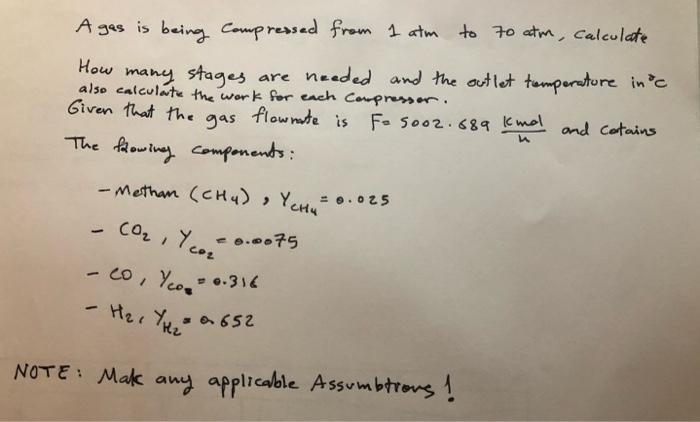 A gas is being Compressed from 1 atm to 70 atm, Calculate
How many stages are needed and the outlet temperature in °C
also calculate the work for each Compressor.
Given that the gas flowrate is F= 5002.689 Kmol/h and cotains
The flowing Components:
- Methan (CH4), YCH4 = 0.025
- CO2, YCO2 = 0.0075
- CO, YCO = 0.316
- H2, YH2 = 0.652
NOTE: Mak any applicable Assumbtions!